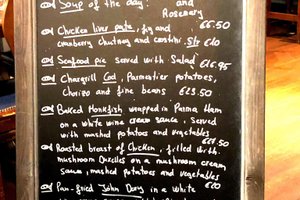 Soup of the day: and
Rosemary
Chicken liver pate, fig and €6.50
cranberry chutney and crostini. Str €10
Seafood pie served with Salad €16.95
Chargrill Cod, Parmentier potatoes,
Chorizo and fine beans €23.50
Baked Monkfish wrapped in Parma Ham
on a white wine cream sauce, served
with mashed potatoes and vegetables
Roasted breast of Chicken, filled with
mushroom Duxelles on a mushroom cream
sauce, mashed potatoes and vegetables
€20
Pan-fried John Dory in a white